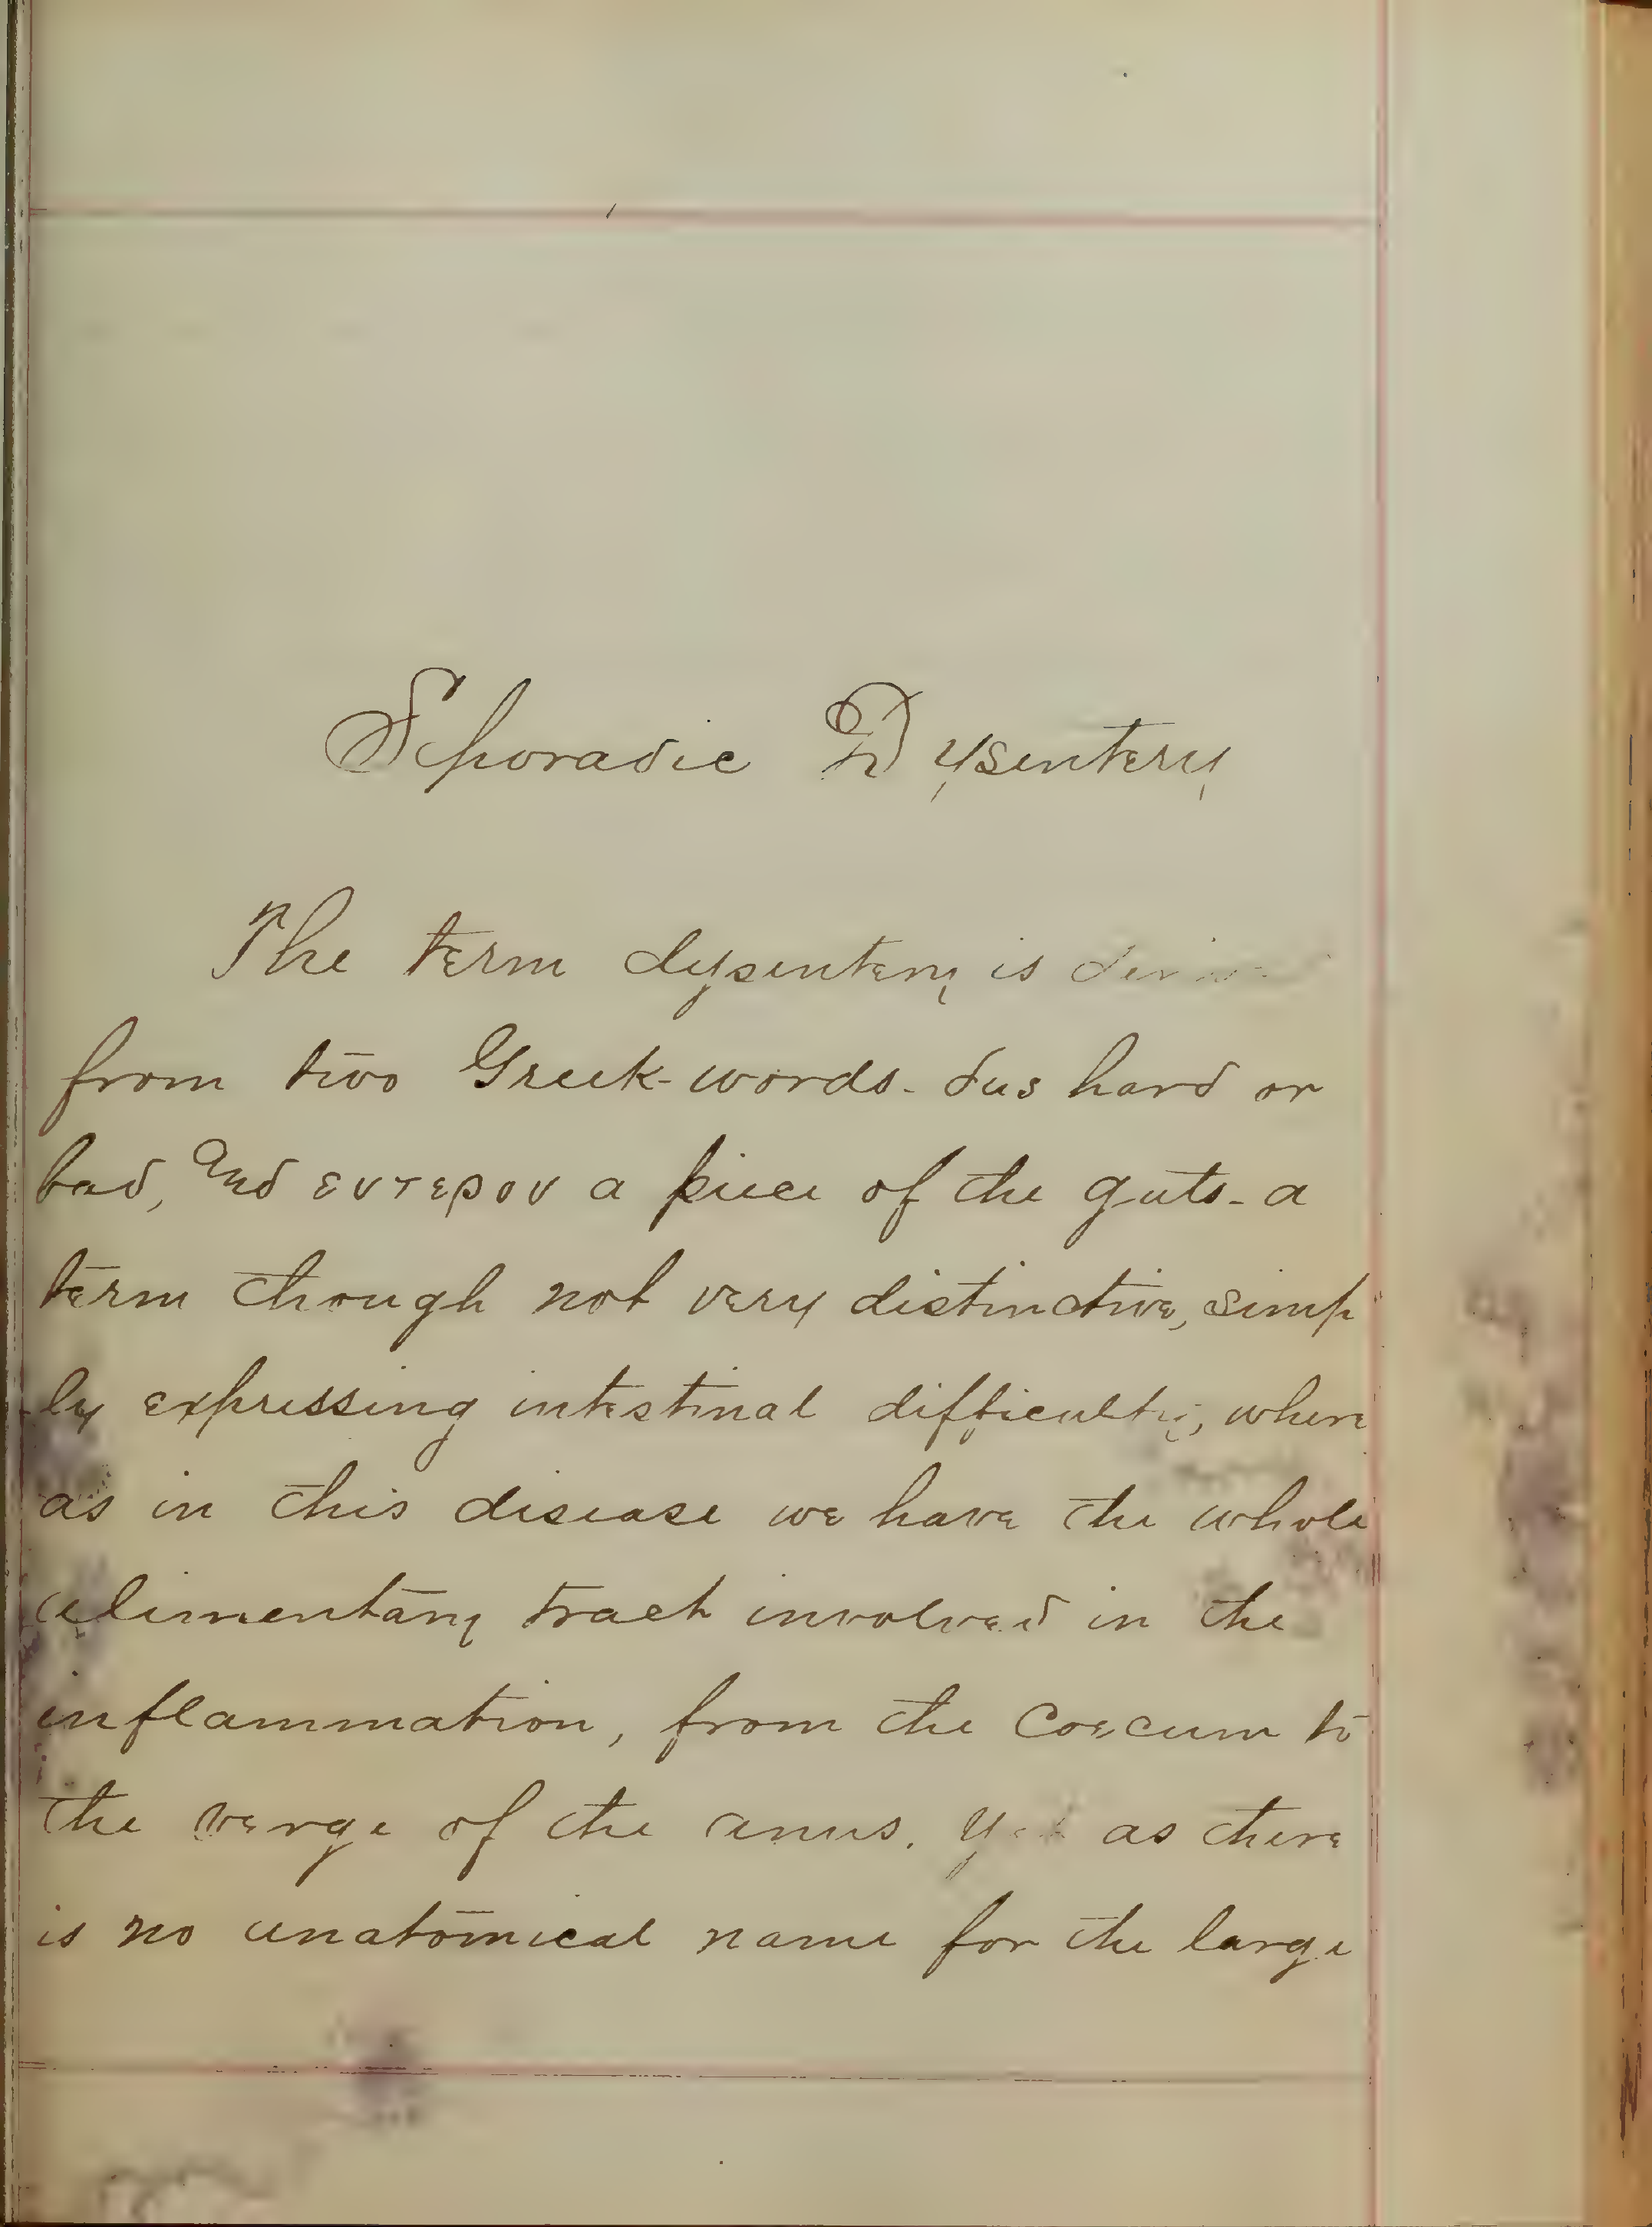 Sporadic Dysentery
The term dysentery is
from two Greek-words- δυς hard or
bad, and εντερον a piece of the guts- a
term though not very distinctive, simp
ly expressing intestinal difficulty, where
as in this disease we have the whole
alimentary tract involved in the
inflammation, from the Coecum to
the verge of the anus. Yet as there
is no anatomical name for the large